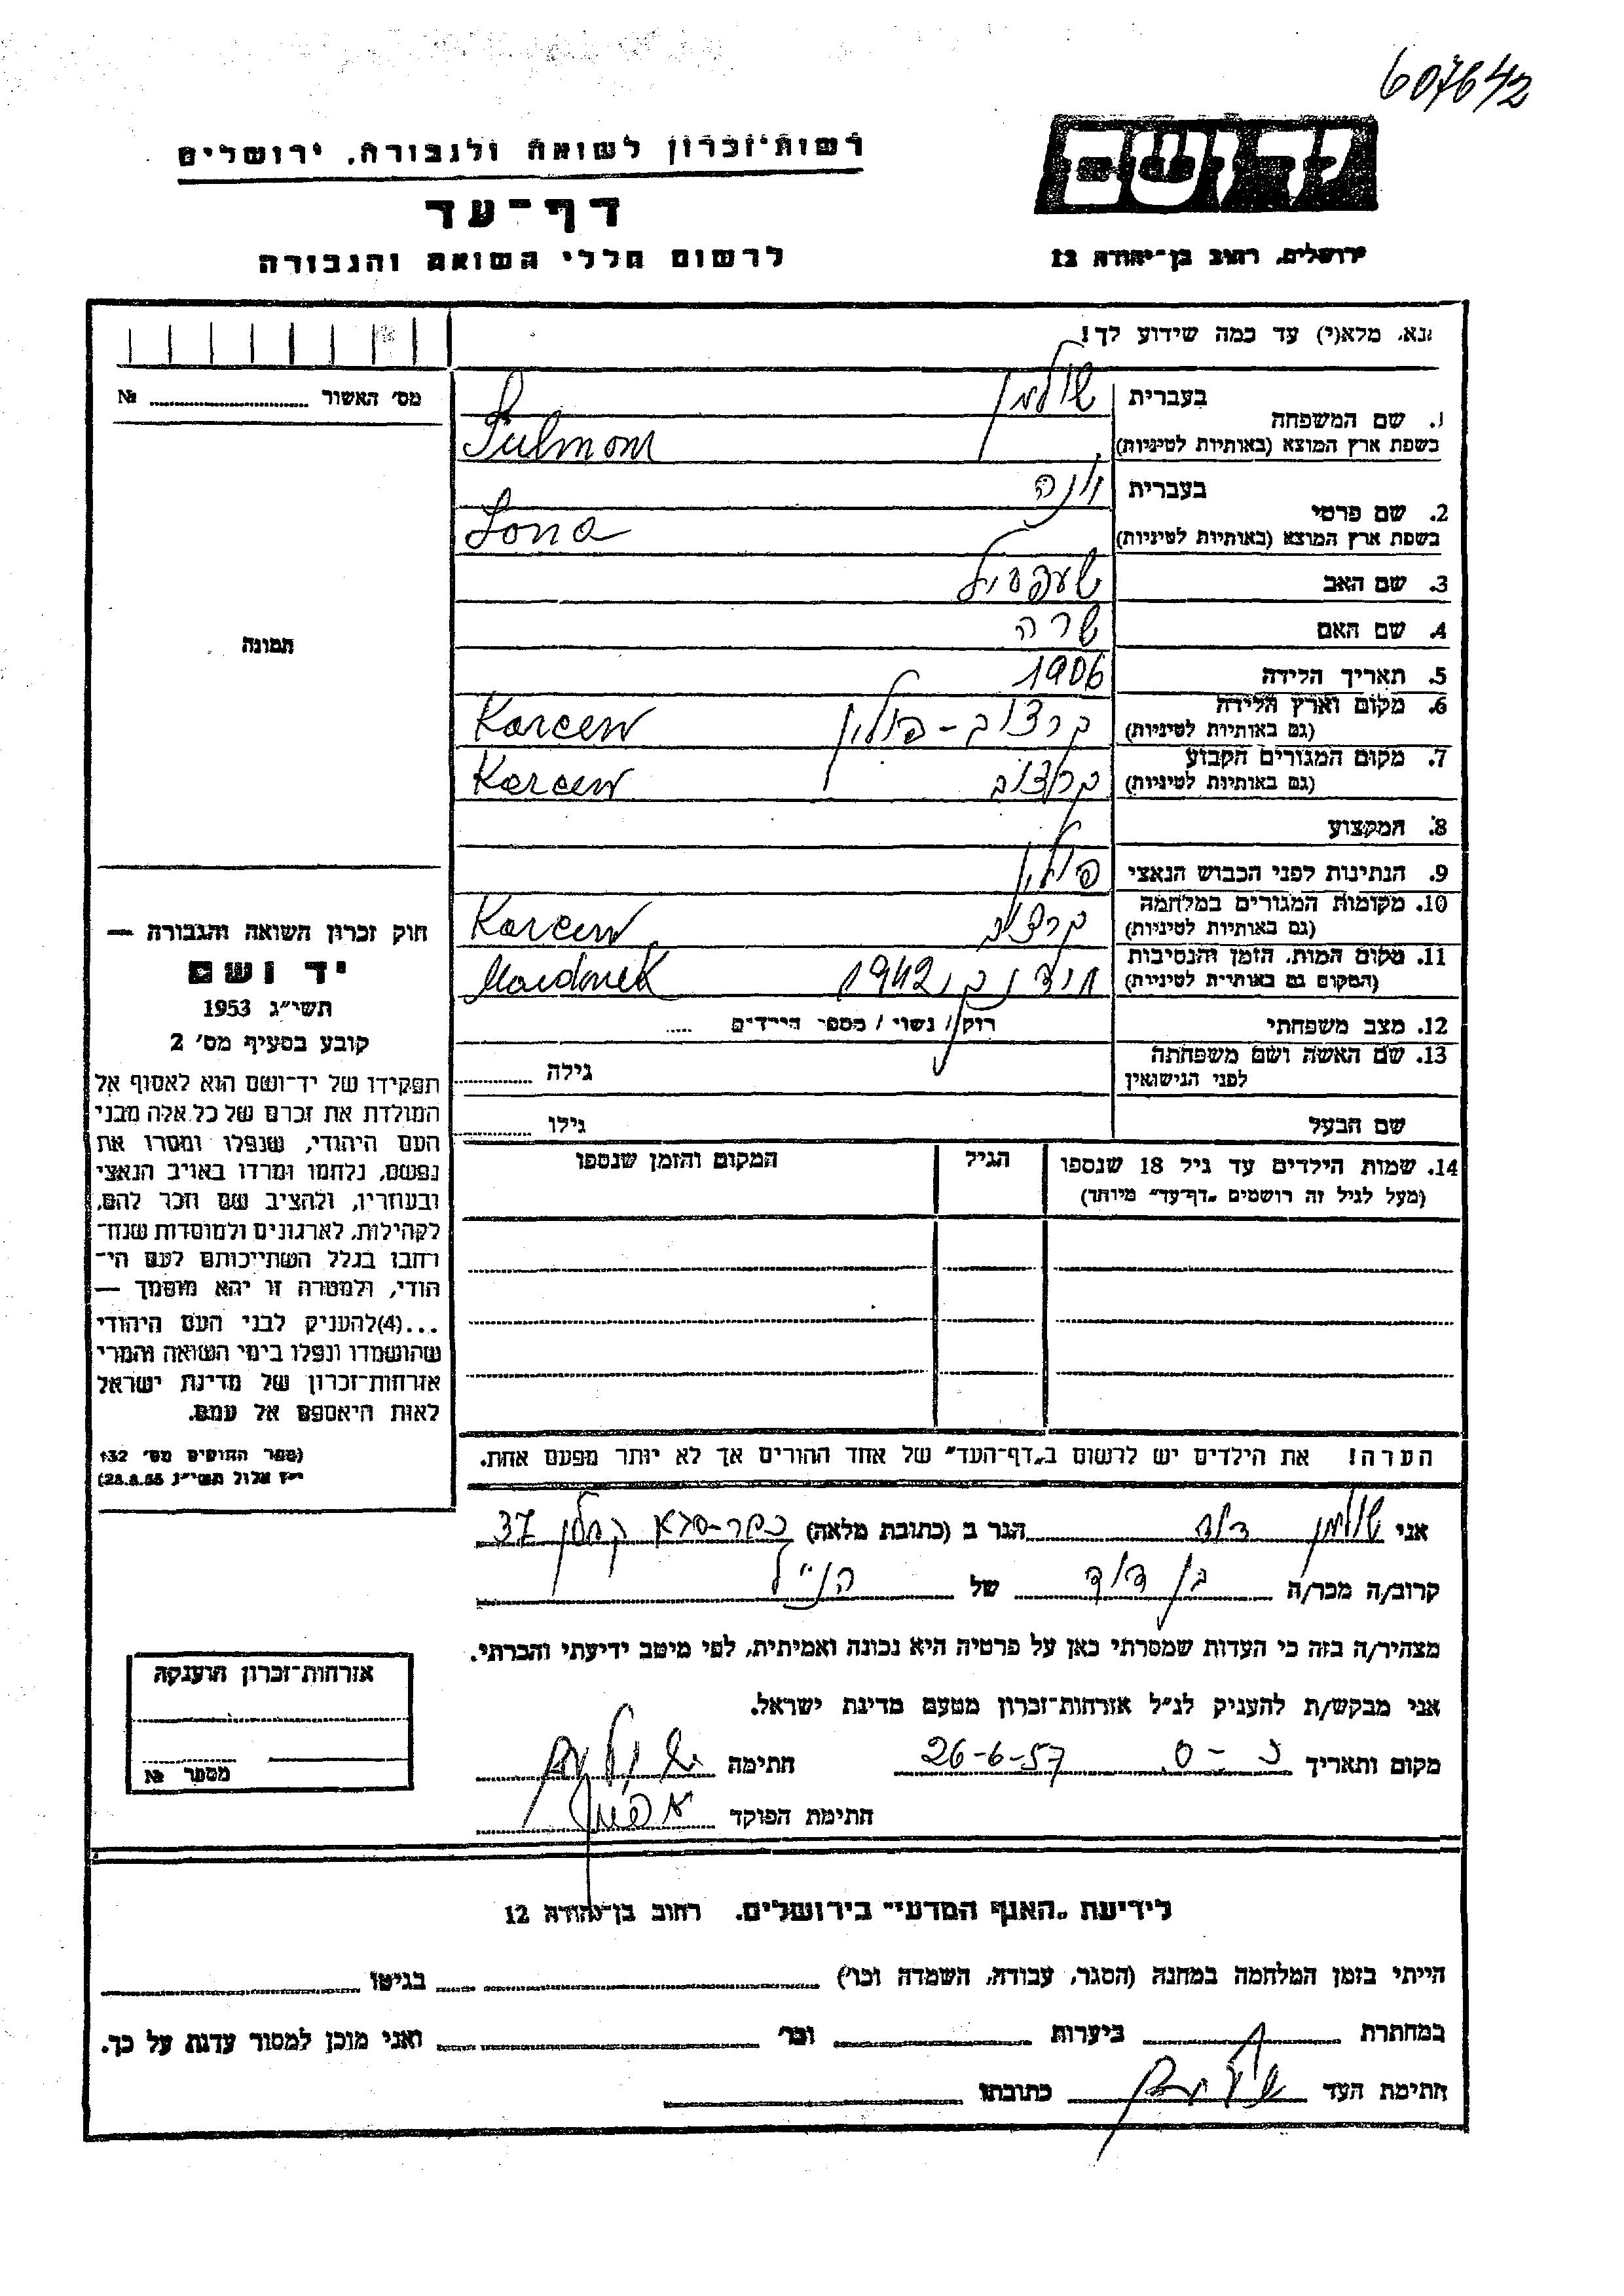 607642
רשות־זכרון לשואה ולגבורה, ירושלים
יד ושם
דף־עד
לרשום חללי השואה והגבורה
ירושלים, רחוב בן־יהודה 12
נא, מלא(י) עד כמה שידוע לך!
מס׳ האשור № 
1. שם המשפחה בעברית שולמן
בשפת ארץ המוצא (באותיות לטיניות) Sulmom
2. שם פרטי בעברית
בשפת ארץ המוצא (באותיות לטיניות) Lona
3. שם האב
4. שם האם שרה
תמונה
5. תאריך הלידה 1906
6. מקום וארץ הלידה קרצוב - פולין Karcew
(גם באותיות לטיניות)
7. מקום המגורים הקבוע קרצוב Karcew
(גם באותיות לטיניות)
8. המקצוע
9. הנתינות לפני הכבוש הנאצי פולין
10. מקומות המגורים במלחמה קרצוב Karcew
(גם באותיות לטיניות)
11. מקום המות, הזמן והנסיבות מידנק 1942 Maidnek
(המקום גם באותיות לטיניות)
12. מצב משפחתי רוק / נשוי / מספר הילדים
13. שם האשה ושם משפחתה גילה
לפני הנישואין
שם הבעל גילו
14. שמות הילדים עד גיל 18 שנספו הגיל המקום והזמן שנספו
(מעל לגיל זה רושמים „דף־עד״ מיוחד)
חוק זכרון השואה והגבורה —
יד ושם
תשי״ג 1953
קובע בסעיף מס׳ 2
תפקידו של יד־ושם הוא לאסוף אל
המולדת את זכרם של כל אלה מבני
העם היהודי, שנפלו ומסרו את
נפשם, נלחמו ומרדו באויב הנאצי
ובעוזריו, ולהציב שם וזכר להם,
לקהילות, לארגונים ולמוסדות שנח־
רבו בגלל השתייכותם לעם הי־
הודי, ולמטרה זו יהא מוסמך —
...(4)להעניק לבני העם היהודי
שהושמדו ונפלו בימי השואה והמרי
אזרחות־זכרון של מדינת ישראל
לאות היאספם אל עמם.
(ספר החוקים מס׳ 132
הערה! את הילדים יש לרשום ב„דף־העד״ של אחד ההורים אך לא יותר מפעם אחת.
אני שולמן דוד הגר ב (כתובת מלאה) כפר-סבא קפלן 37
קרוב/ה מכר/ה בן דוד של הנ״ל
מצהיר/ה בזה כי העדות שמסרתי כאן על פרטיה היא נכונה ואמיתית, לפי מיטב ידיעתי והכרתי.
אני מבקש/ת להעניק לנ״ל אזרחות־זכרון מטעם מדינת ישראל.
מקום ותאריך כ-ס 26-6-57 חתימה
חתימת הפוקד
אזרחות־זכרון הוענקה
מספר №
לידיעת „האגף המדעי״ בירושלים. רחוב בן־יהודה 12
הייתי בזמן המלחמה במחנה (הסגר, עבודה, השמדה וכו׳) בגיטו
במחתרת ביערות וכו׳ ואני מוכן למסור עדות על כך.
חתימת העד כתובתו